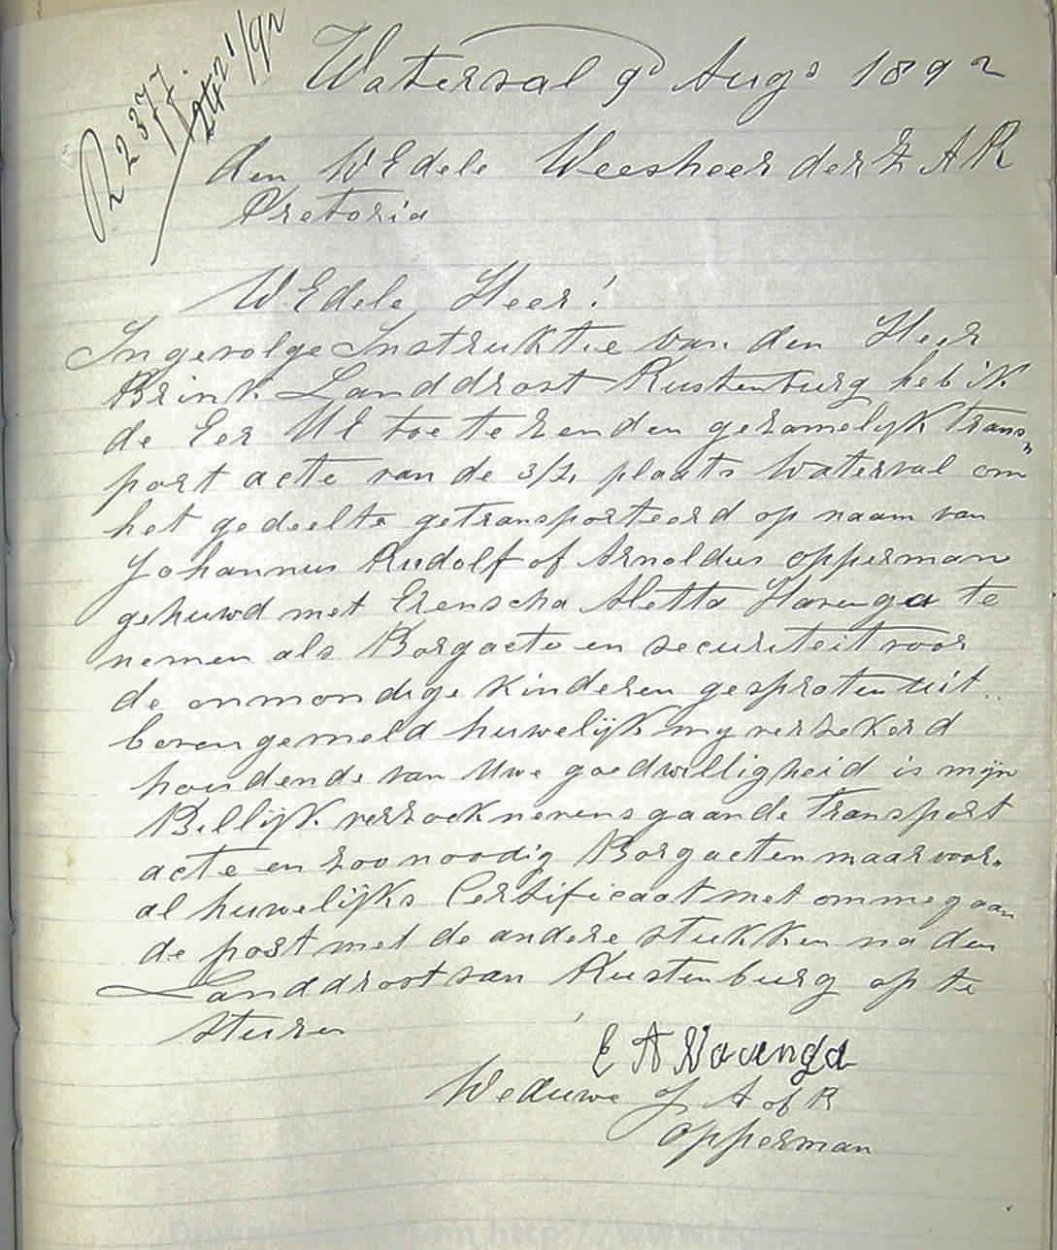 R2377/92
Waterval 9d Augs 1892
Aan WEdele Weesheer der Z A R
Pretoria
WEdele Heer!
Ingevolge Instruktie van den Heer
Brink Landdrost Rustenburg heb ik
de Eer UE toe te zenden gezamelyk trans„
port acte van de plaats Waterval om
het gedeelte getransporteerd op naam van
Johannes Rudolf of Arnoldus Opperman
gehuwd met Erenscha Aletta Havenga te
nemen als Borgacte en securiteit voor
de onmondige kinderen gesproten uit
bovengemeld huwelijk my verzekerd
houdende van Uwe goedwilligheid is mijn
Billijk verzoek nevensgaande Transport
acte en zoo noodig Borgacten maar voor
al huwelijks Certificaat met ommegaan
de post met de andere stukken na den
Landdrost van Rustenburg op te
sturen
E A Havenga
Weduwe J A of R
Opperman